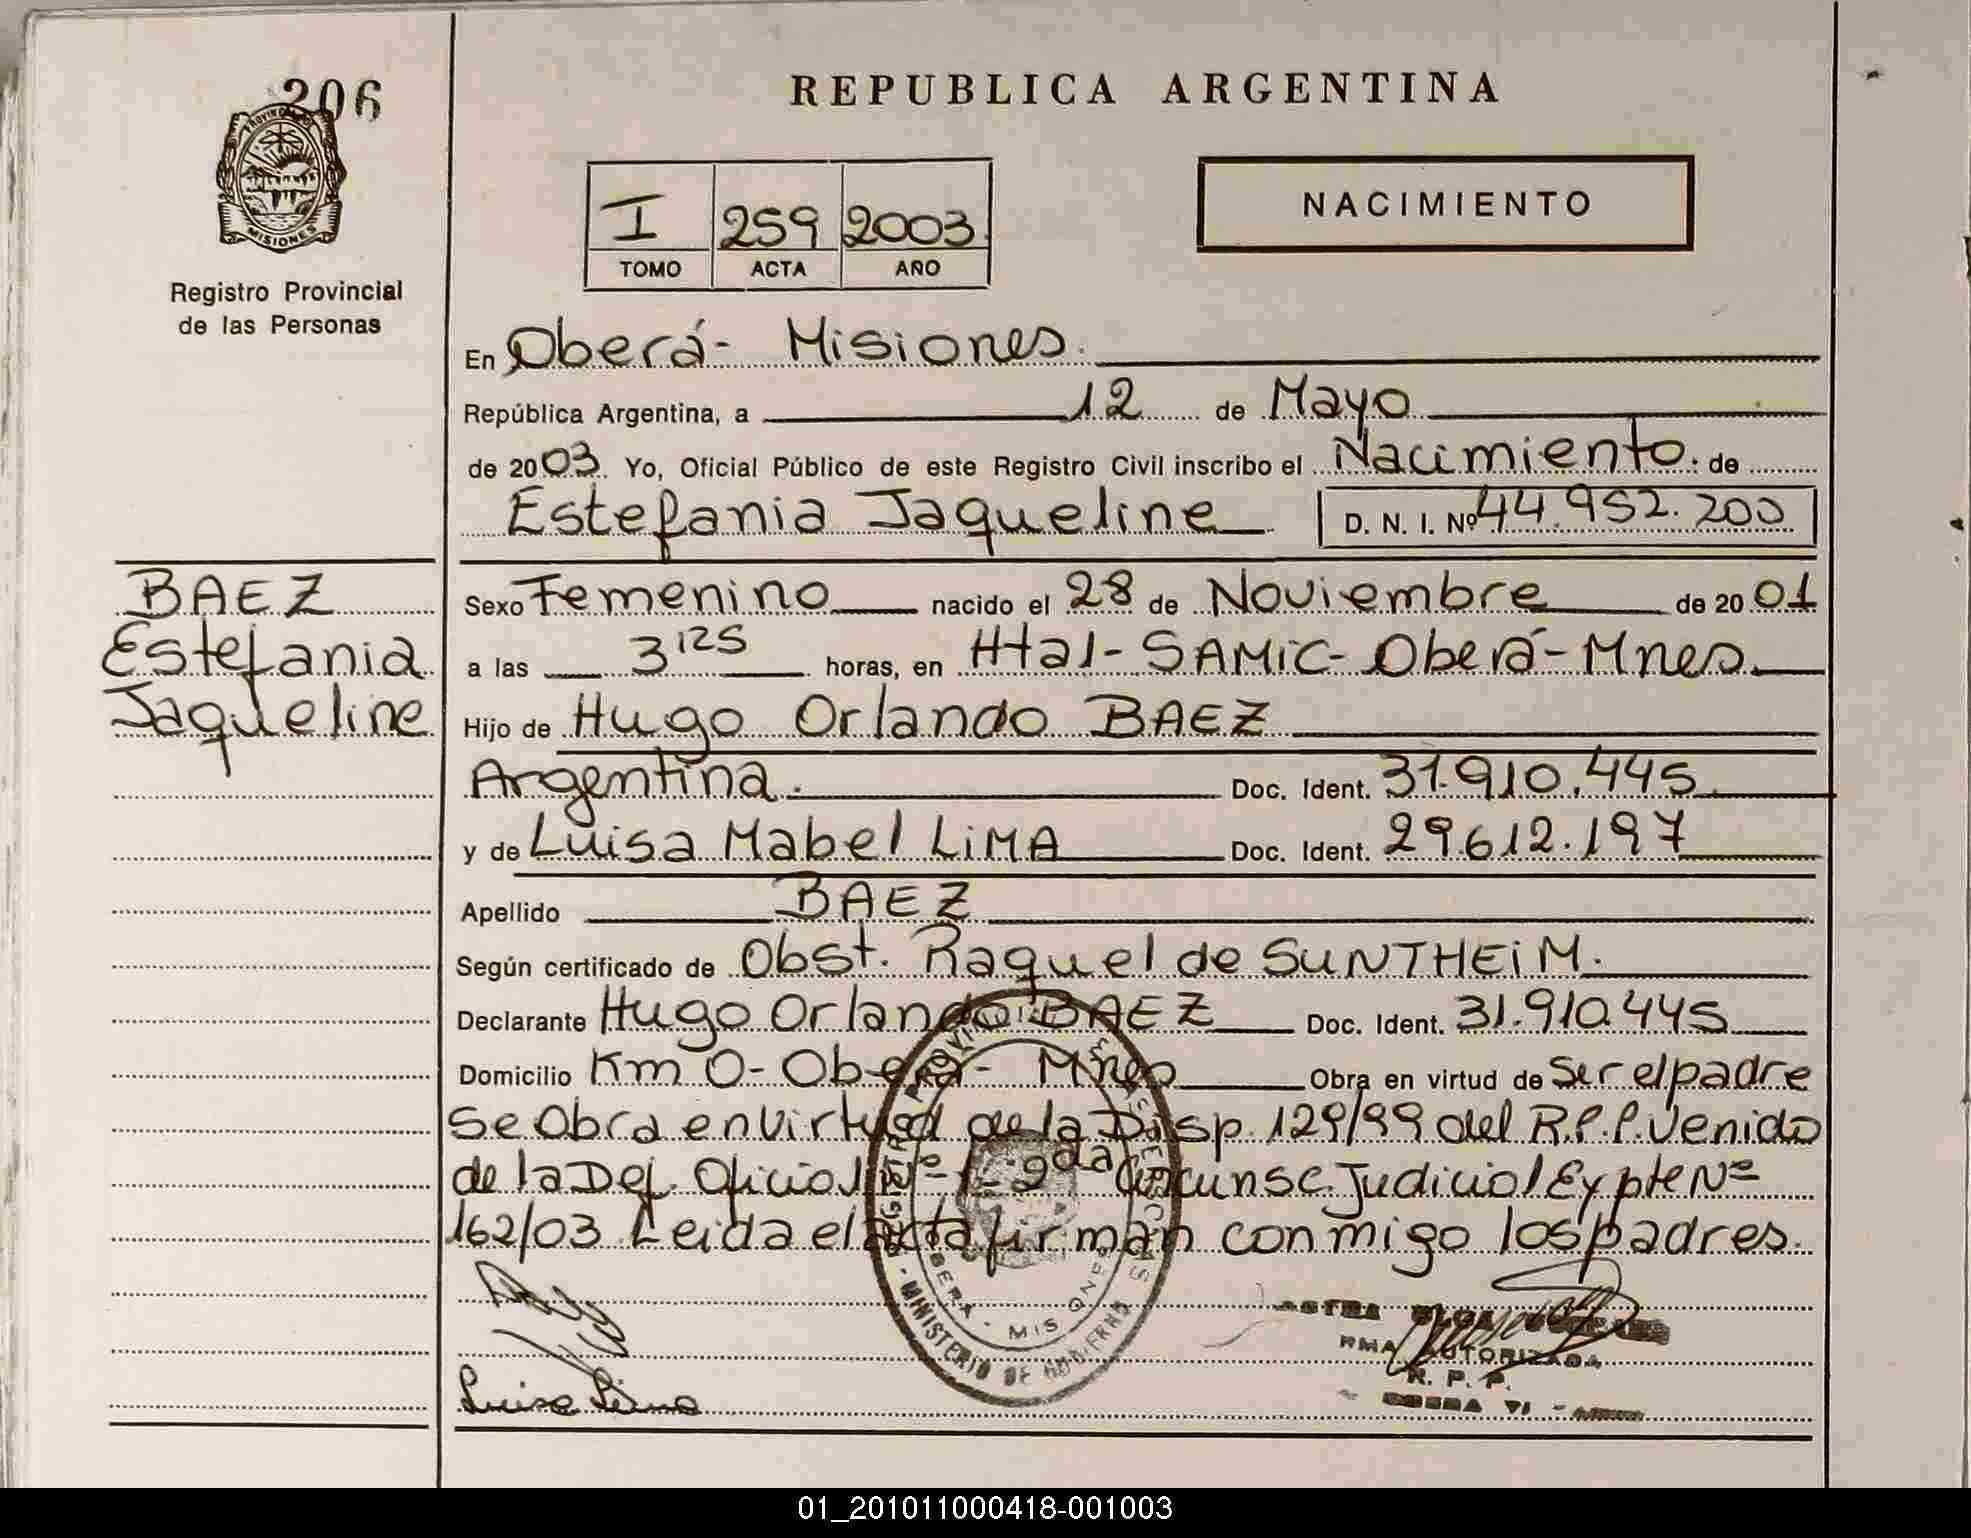 206
PROVINCIA DE
MISIONES
Registro Provincial
de las Personas
REPUBLICA ARGENTINA
I 259 2003
TOMO ACTA AÑO
NACIMIENTO
En Oberá - Misiones.
República Argentina, a 12 de Mayo
de 2003. Yo, Oficial Público de este Registro Civil inscribo el Nacimiento. de
Estefania Jaqueline D. N. I. Nº 44.952.200
BAEZ
Estefania
Jaqueline
Sexo Femenino nacido el 28 de Noviembre de 2001
a las 3,25 horas, en Htal - SAMiC - Oberá - Mnes.
Hijo de Hugo Orlando BAEZ
Argentina. Doc. Ident. 31.910.445.
y de Luisa Mabel LiMA Doc. Ident. 29.612.197
Apellido BAEZ
Según certificado de Obst. Raquel de SUNTHEiM.
Declarante Hugo Orlando BAEZ Doc. Ident. 31.910.445
Domicilio Km 0 - Oberá - Mnes Obra en virtud de Ser el padre
Se Obra en virtud de la Disp. 129/99 del R.P.P. Venido
de la Def. Oficial Nº 1 - 2da Circunsc. Judicial Expte Nº
162/03 Leida el acta firman conmigo los padres.
MINISTERIO DE GOBIERNO
OBERA - MISIONES
Luisa Lima
FIRMA AUTORIZADA
R. P. P.
01_201011000418-001003